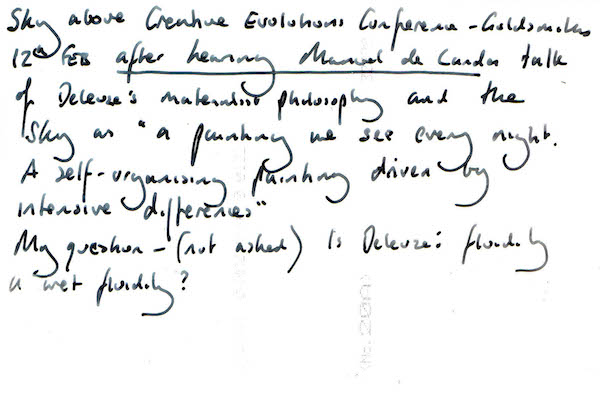 Sky above Creative Evolutions Conference - Goldsmiths
12th Feb after hearing Manuel de Landas talk
of Deleuze's materialist philosophy and the
Sky as "a painting we see every night.
A self-organising painting driven by
intensive differences"
My question - (not asked) Is Deleuze's fluidity
a wet fluidity?